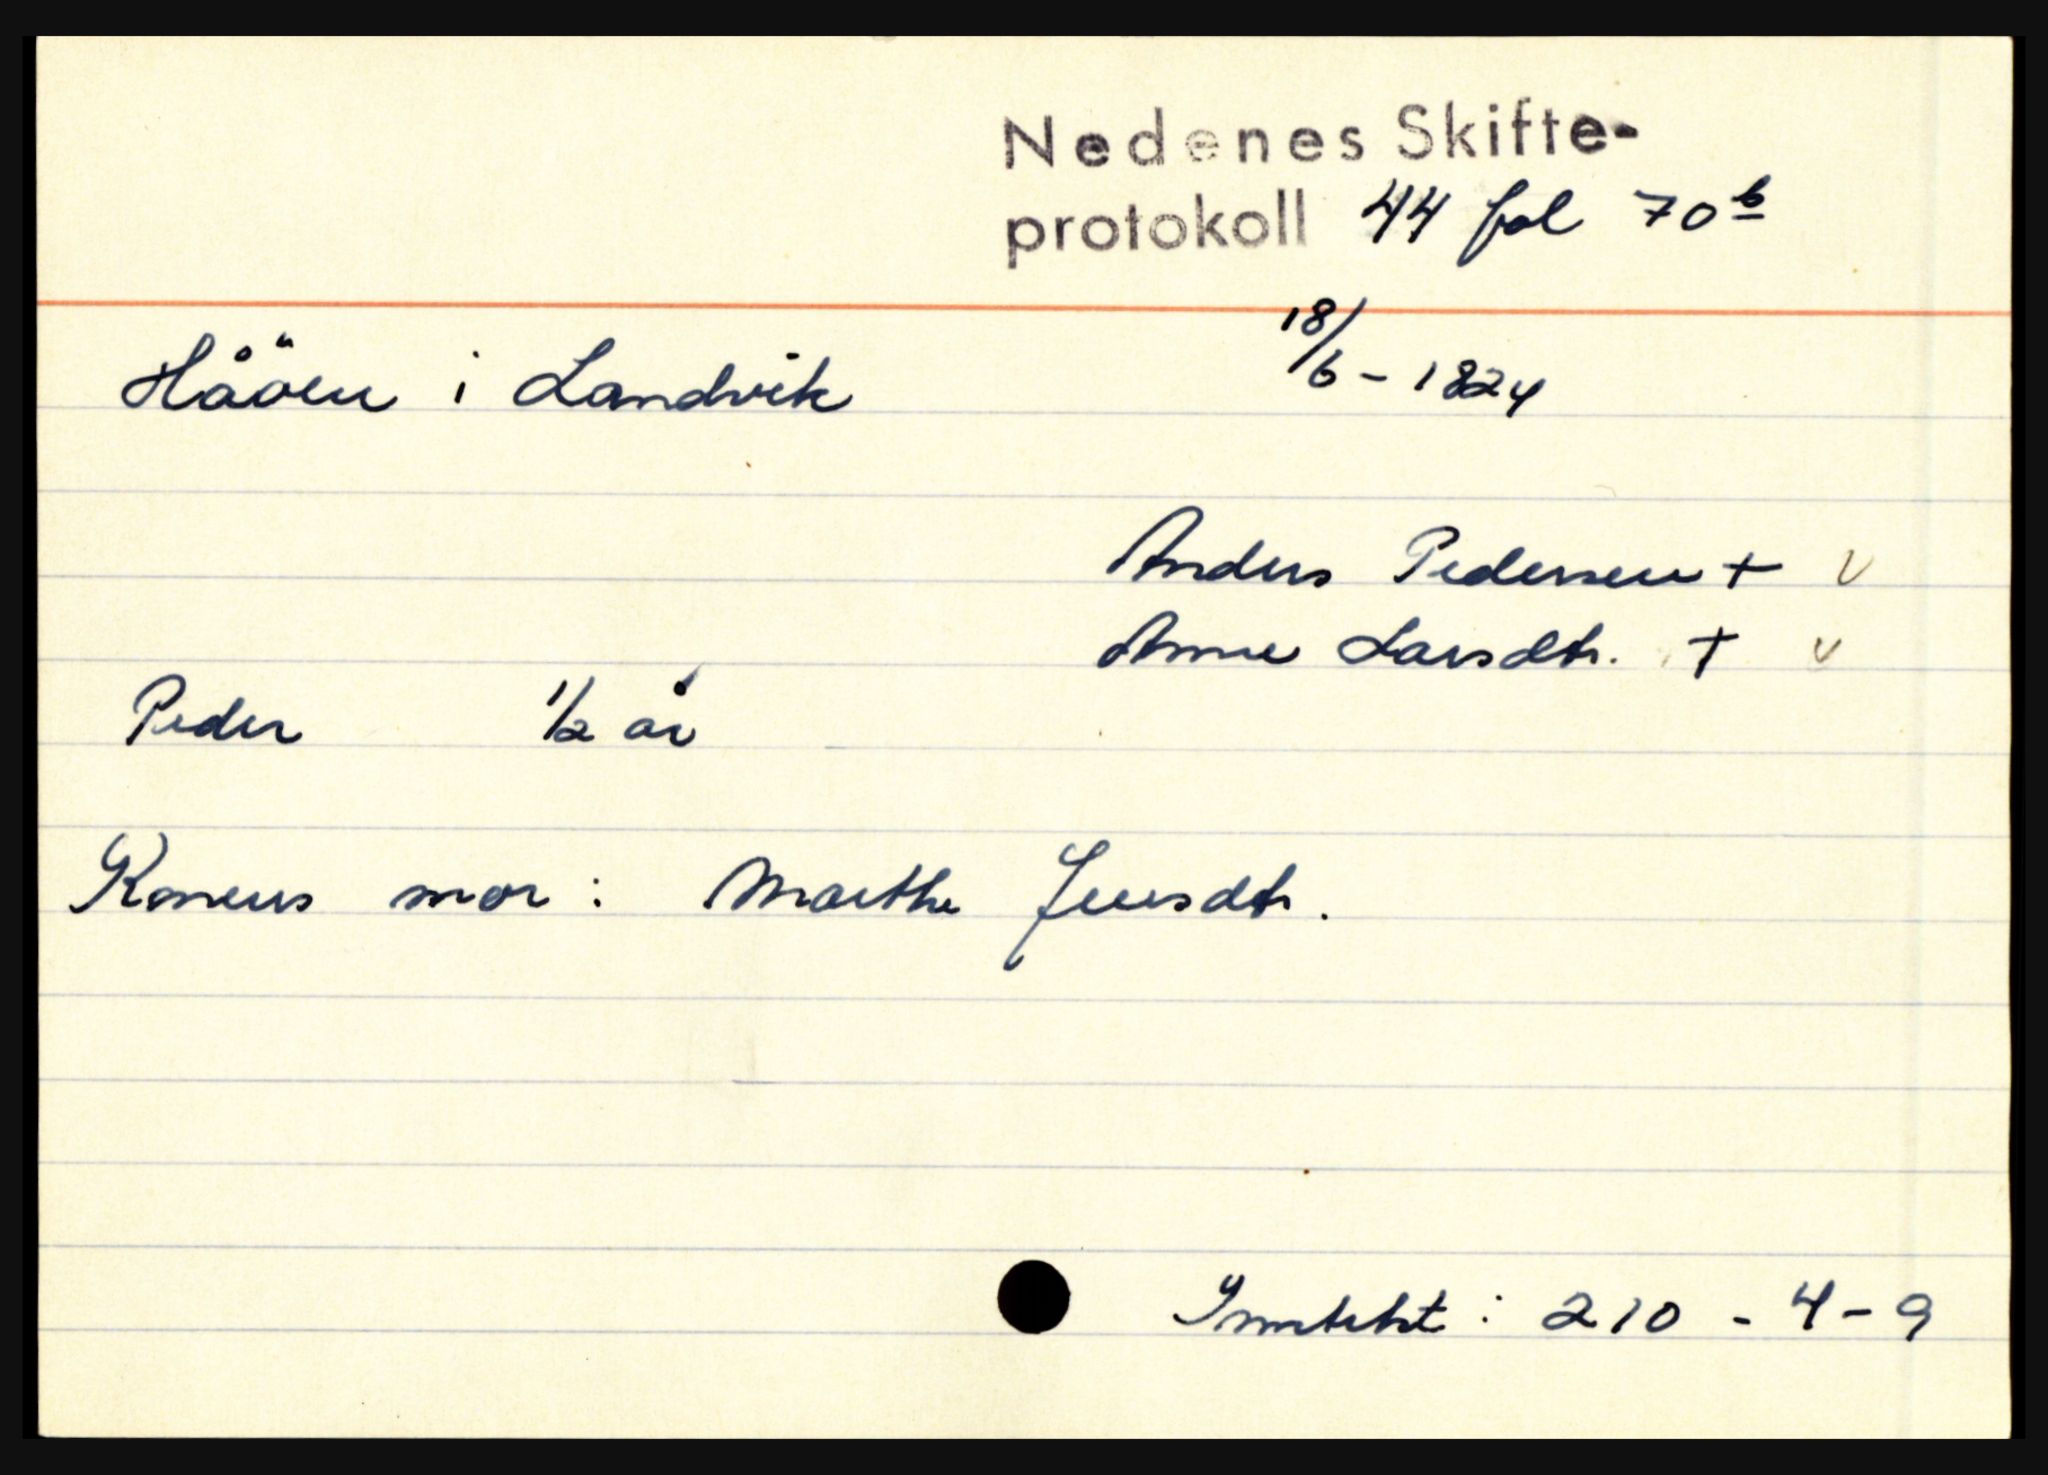 Nedenes Skifte-
protokoll 44 fol 70 b
18/6 - 1824
Håöen i Landvik
Anders Pedersen + v
Anne Larsdtr. + v
Peder 1/2 år
Konens mor : Marthe Jensdtr.
Inntekt : 210 - 4 - 9